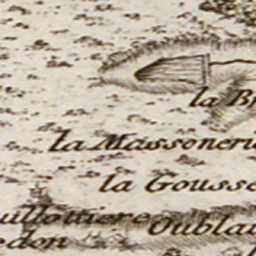 la Br
la Massonerie
la Gousse
uillottiere
Oublai
edon